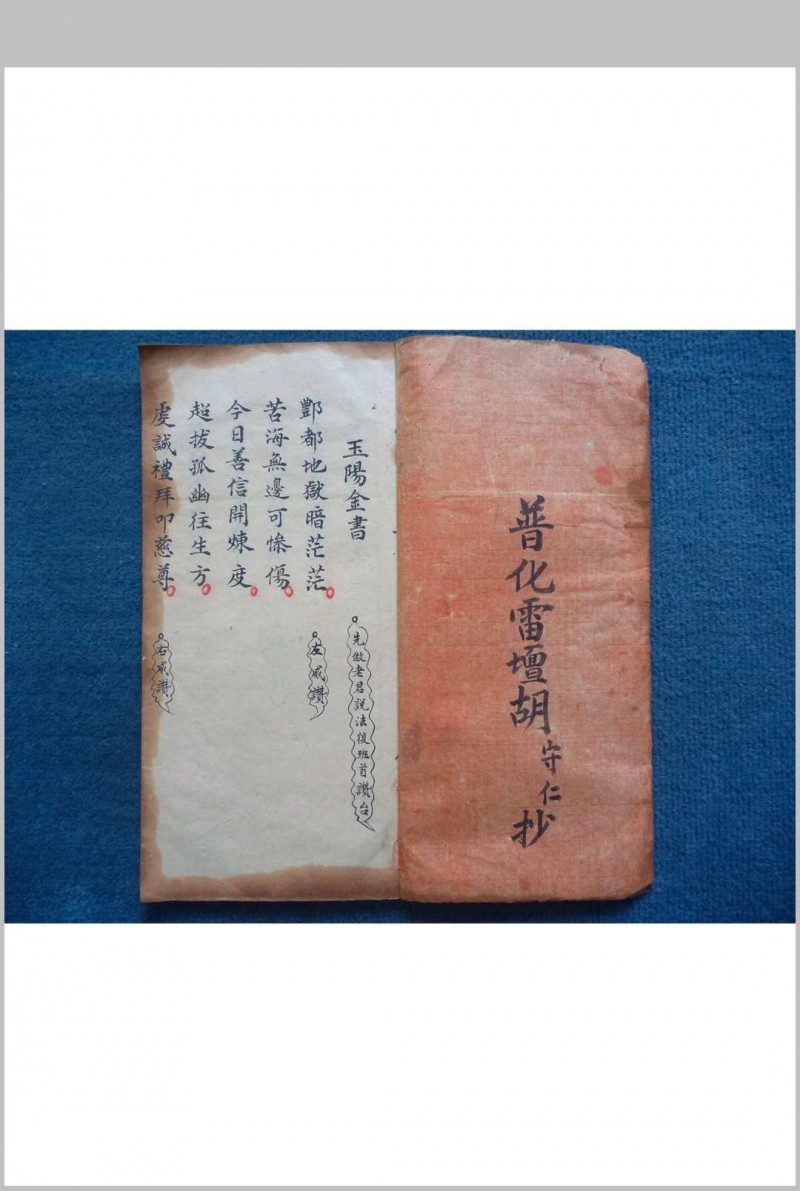 普化雷壇胡守仁抄
玉陽金書
先做老君說法後班首讚台
酆都地獄暗茫茫
左咸讚
苦海無邊可慘傷
今日善信開煉度
超拔孤幽往生方
虔誠禮拜叩慈尊
右咸讚